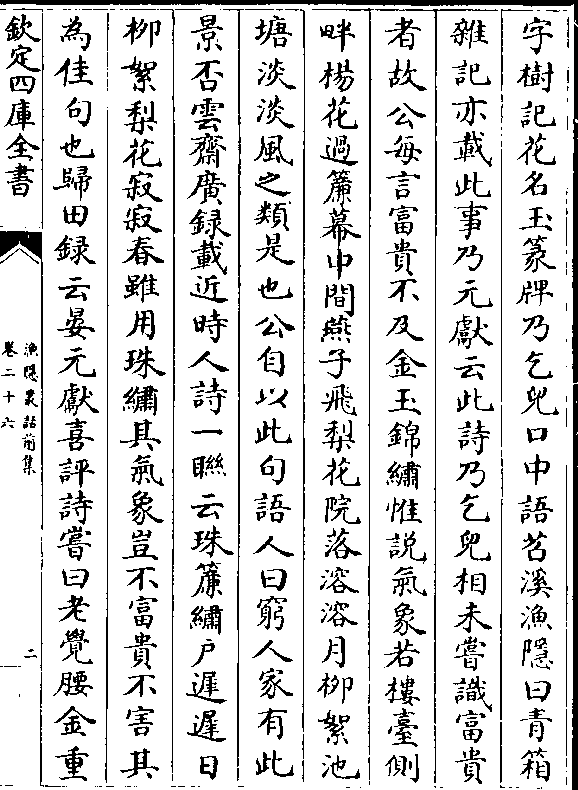 字樹記花名玉篆牌乃乞兒口中語苕溪漁隱曰青箱
雜記亦載此事乃元獻云此詩乃乞兒相未嘗識富貴
者故公每言富貴不及金玉錦繡惟説氣象若樓臺側
畔楊花過簾幕中間燕子飛梨花院落溶溶月柳絮池
塘淡淡風之類是也公自以此句語人曰窮人家有此
景否雲齋廣録載近時人詩一聮云珠簾繡户遲遲日
柳絮梨花寂寂春雖用珠繡其氣象豈不富貴不害其
為佳句也歸田録云晏元獻喜評詩嘗曰老覺腰金重
欽定四庫全書
漁隱叢話前集
卷二十六
二